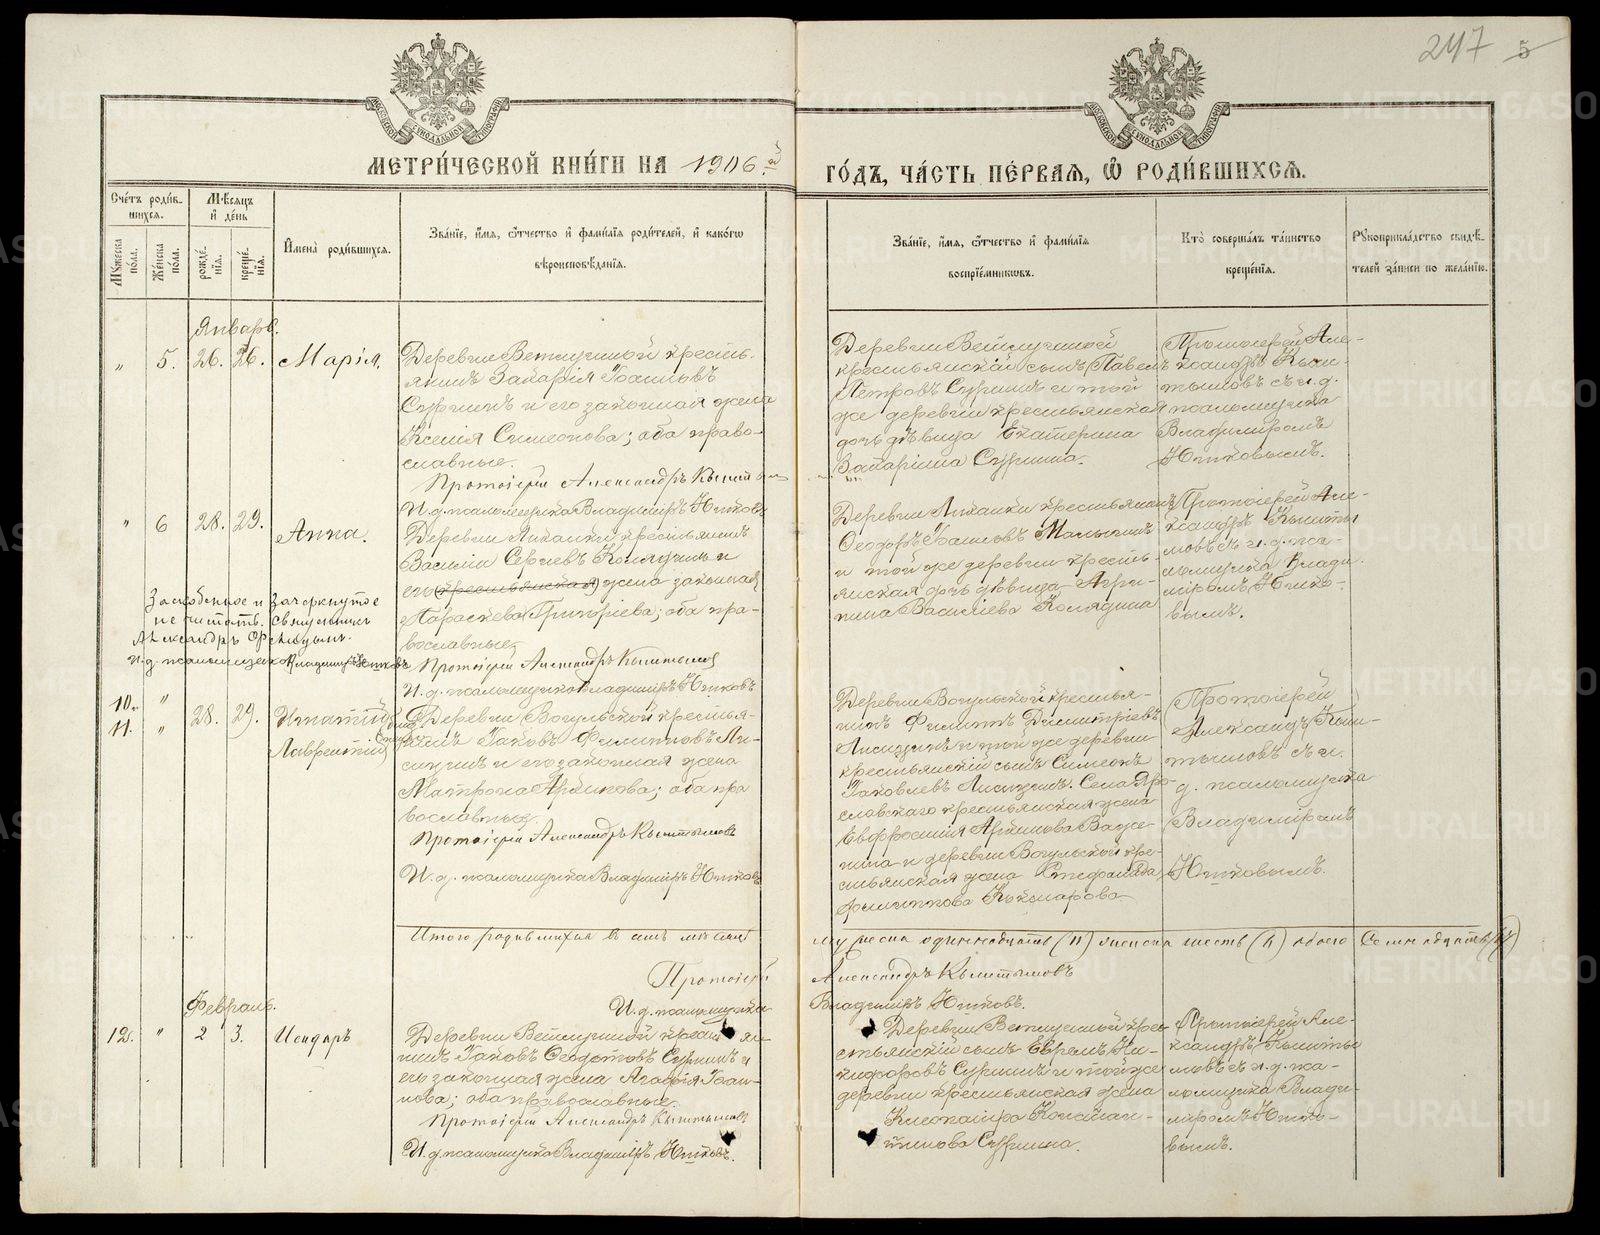 247 5
МЕТРИЧЕСКОЙ КНИГИ НА 1906 й
ГОДЪ, ЧАСТЬ ПЕРВАЯ, Ѡ РОДИВШИХСЯ.
Счетъ родившихся.
Мужеска пола.
Женска пола.
Мѣсяцъ и день
рожденія.
крещенія.
Имена родившихся.
Званіе, имя, отчество и фамилія родителей, и какого
вѣроисповѣданія.
Званіе, имя, отчество и фамилія
воспріемниковъ.
Кто совершалъ таинство
крещенія.
Рукоприкладство свидѣтелей записи по желанію.
Январь.
" 5. 26. 26. Марія.
Деревни Ветлугиной кресть-
янинъ Захарія Іоанновъ
Сургинъ и его законная жена
Ксенія Симеонова; оба право-
славные.
Протоіерей Александръ Кыштымовъ
И. д. псаломщика Владиміръ Ютковъ
Деревни Ветлугиной
крестьянскій сынъ Павелъ
Петровъ Сургинъ и той
же деревни крестьянская
дочь дѣвица Екатерина
Захаріина Сургина.
Протоіерей Але-
ксандръ Кыш-
тымовъ съ и. д.
псаломщика
Владиміромъ
Ютковымъ.
" 6 28. 29. Анна.
крестьянинъ
Василій Сергѣевъ Колядинъ и
его (крестьянская) жена законная
Параскева Григоріева; оба пра-
вославные.
Протоіерей Александръ Кыштымовъ
И. д. псаломщика Владиміръ Ютковъ
Ѳеодоръ Іоанновъ
и той же деревни кресть-
янская дочь дѣвица Агри-
пина Василіева Колядина
Протоіерей Але-
ксандръ Кышты-
мовъ съ и. д. пса-
ломщика Влади-
міромъ Ютко-
вымъ.
Заскобенное и зачеркнутое
не читать. Священникъ
Александръ
И. д. псаломщика Владиміръ Ютковъ
10. "
11. " 28. 29. Игнатій
Лаврентій
Деревни Вогульской крестья-
нинъ Іаковъ Филипповъ Ли-
сицинъ и его законная жена
Матрона Архипова; оба пра
вославные.
Протоіерей Александръ Кыштымовъ
И. д. псаломщика Владиміръ Ютковъ
Деревни Вогульской крестья-
нинъ Филиппъ Димитріевъ
Лисицинъ и той же деревни
крестьянскій сынъ Симеонъ
Іаковлевъ Лисицинъ. Села Яро-
славскаго крестьянская жена
Евфросинія Архипова
и деревни Вогульской кре-
стьянская жена Стефанида
Филиппова
Протоіерей
Александръ Кыш-
тымовъ съ и.
д. псаломщика
Владиміромъ
Ютковымъ.
Итого родившихся въ семъ мѣсяцѣ
мужеска одиннадцать (11) женска шесть (6) обоего Семнадцать (17)
Протоіерей
Александръ Кыштымовъ
И. д. псаломщика
Владиміръ Ютковъ.
Февраль.
12. " 2 3. Исидоръ
Деревни Ветлугиной крестьян-
нинъ Іаковъ Ѳеодотовъ Сургинъ и
его законная жена Агафія Іоан-
нова; оба православные.
Протоіерей Александръ Кыштымовъ
И. д. псаломщика Владиміръ Ютковъ.
Деревни Ветлугиной кре-
стьянскій сынъ Ефремъ Ни-
кифоровъ Сургинъ и той же
деревни крестьянская жена
Клеопатра Констан-
тинова Сургина.
Протоіерей Але-
ксандръ Кышты-
мовъ съ и. д. пса-
ломщика Влади-
міромъ Ютко-
вымъ.